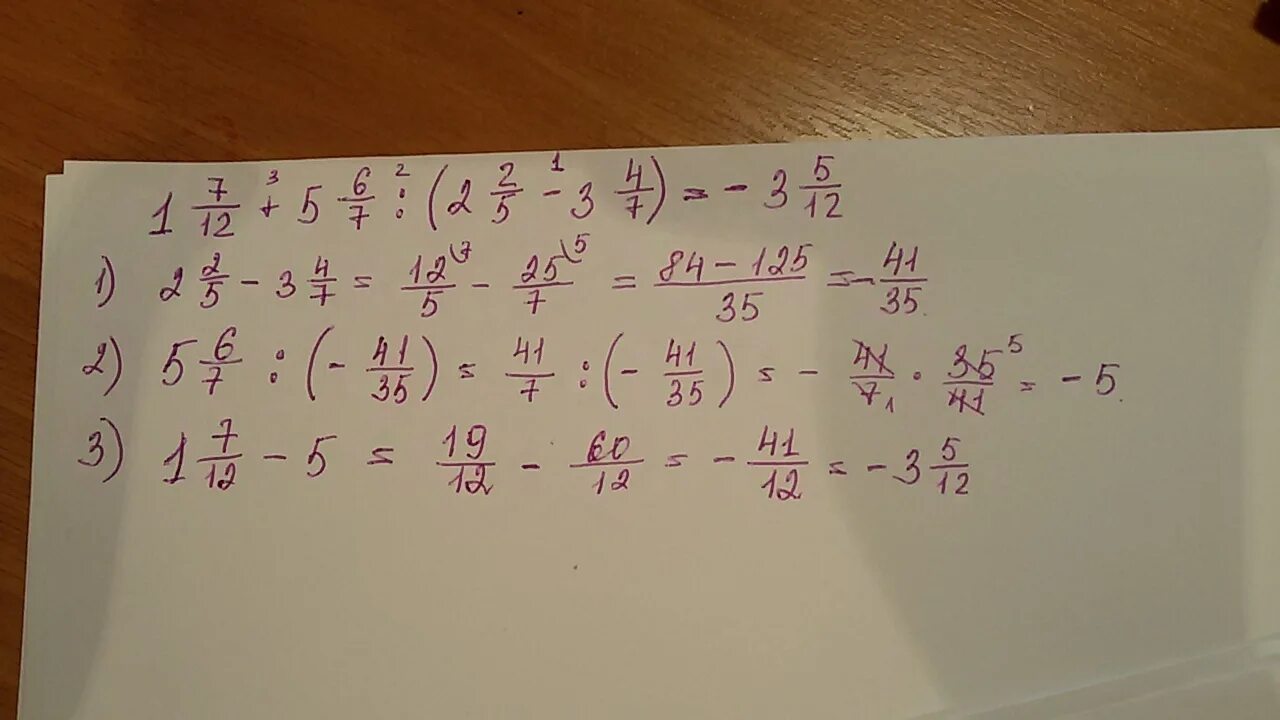 1 7/12 +³ 5 6/7 :² (2 2/5 -¹ 3 4/7) = - 3 5/12
1) 2 2/5 - 3 4/7 = 12\7/5 - 25\5/7 = 84-125/35 = - 41/35
2) 5 6/7 : (- 41/35) = 41/7 : (- 41/35) = - 41/7 1 · 35 5/41 = - 5.
3) 1 7/12 - 5 = 19/12 - 60/12 = - 41/12 = - 3 5/12